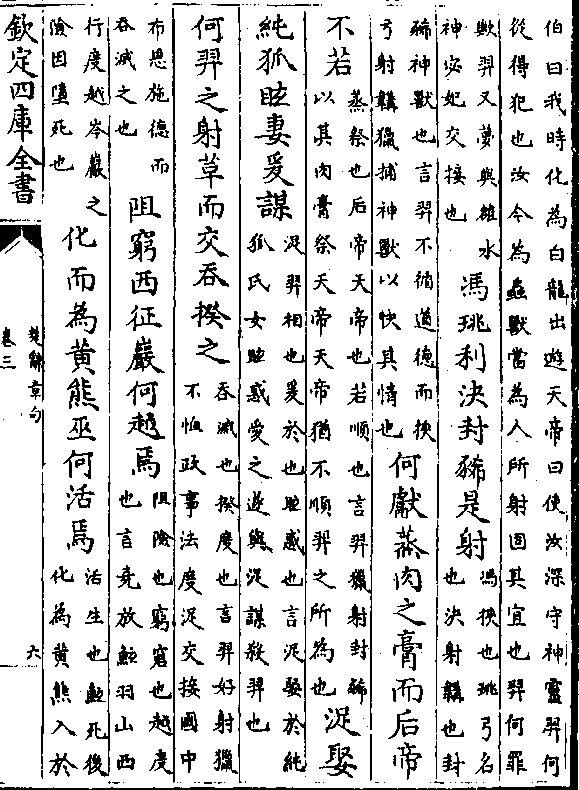 伯曰我時化為白龍出遊天帝曰使汝深守神靈羿何
從得犯也汝今為蟲獸當為人所射固其宜也羿何罪
歟羿又夢與雒水
神宓妃交接也
馮珧利決封豨是射
馮挾也珧弓名
也決射韝也封
豨神獸也言羿不循道德而挾
弓射韝獵捕神獸以快其情也
何獻蒸肉之膏而后帝
不若
蒸祭也后帝天帝也若順也言羿獵射封豨
以其肉膏祭天帝天帝猶不順羿之所為也
浞娶
純狐眩妻爰謀
浞羿相也爰於也眩惑也言浞娶於純
狐氏女眩惑愛之遂與浞謀殺羿也
何羿之射草而交吞揆之
吞滅也揆度也言羿好射獵
不恤政事法度浞交接國中
布恩施德而
吞滅之也
阻窮西征巖何越焉
阻險也窮窘也越度
也言堯放鮌羽山西
行度越岑巖之
險因墮死也
化而為黄熊巫何活焉
活生也鮌死後
化為黄熊入於
欽定四庫全書
楚辭章句
卷三
六